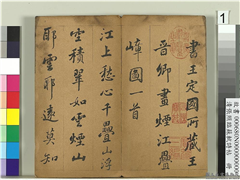 書王定國所藏王
晉卿畫煙江疊
嶂圖一首
江上愁心千疊山浮
空積翠如雲煙山
耶雲耶遠莫知
1